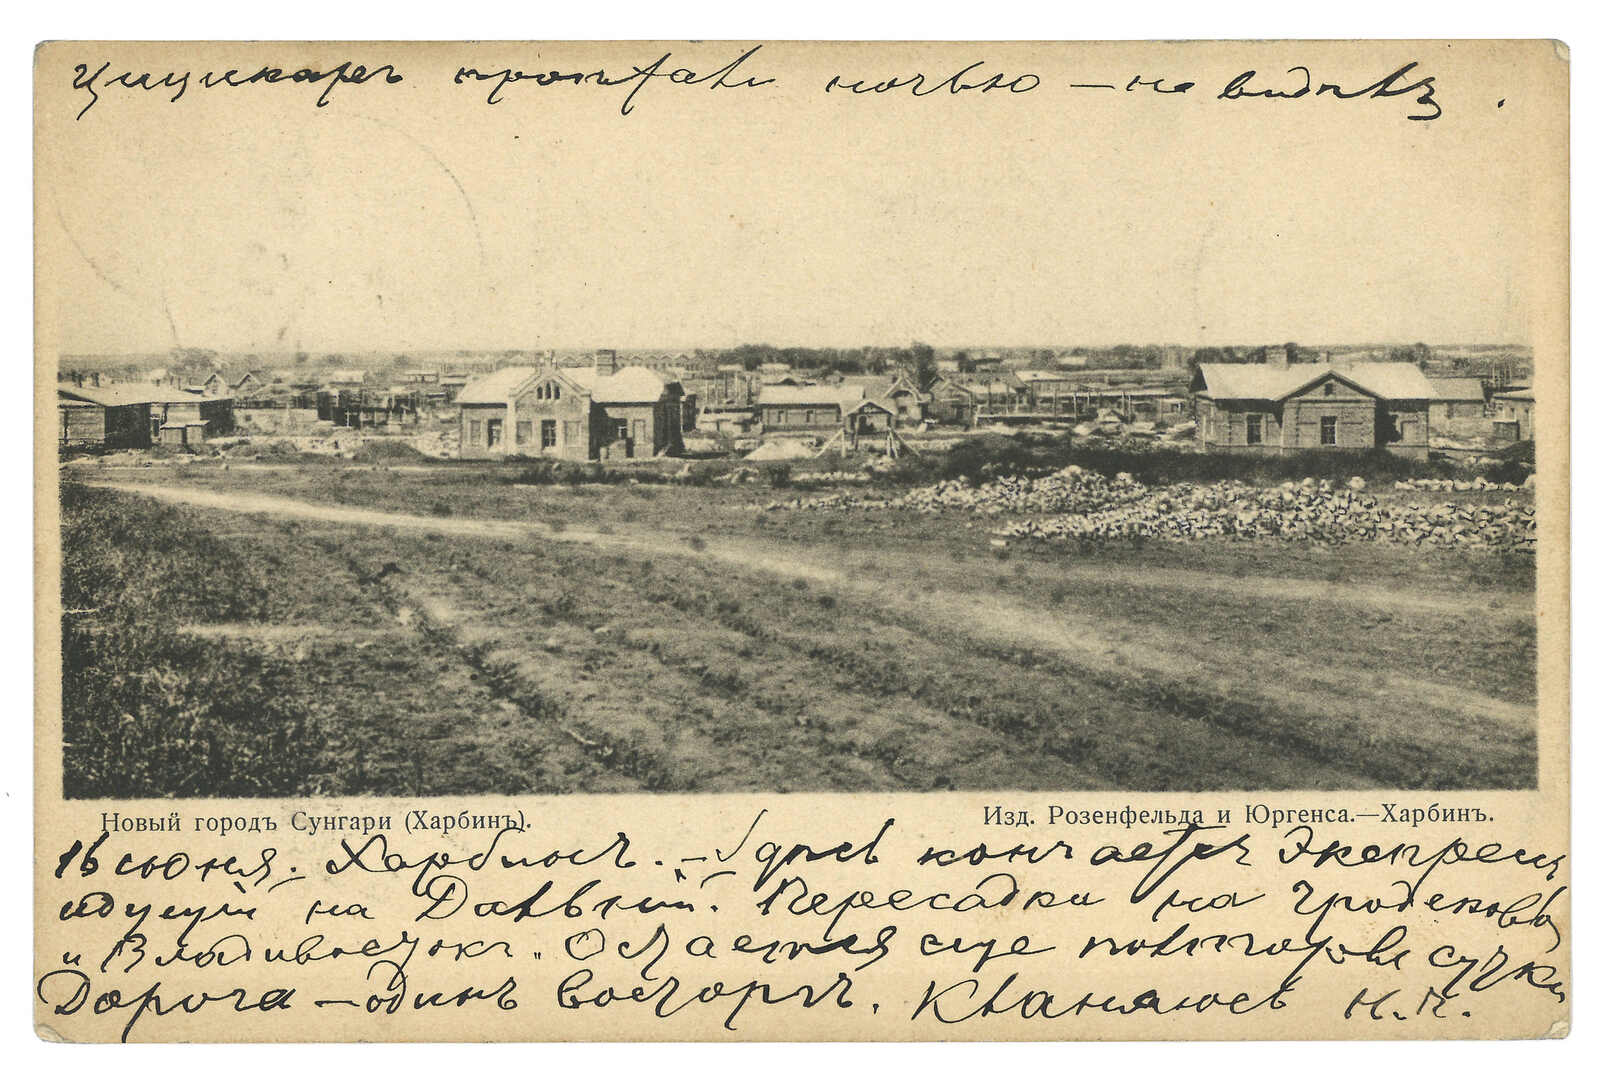 Цицикаръ проѣхали ночью — не видѣлъ.
Новый городъ Сунгари (Харбинъ).
Изд. Розенфельда и Юргенса.—Харбинъ.
16 июня. Харбинъ. — Здѣсь кончается Экспрессъ
идущій на Дальній. Пересадка на Гродеково
и Владивостокъ. Остается еще полтора сутки
Дорога — одинъ восторгъ. Кланяюсь Н.К.